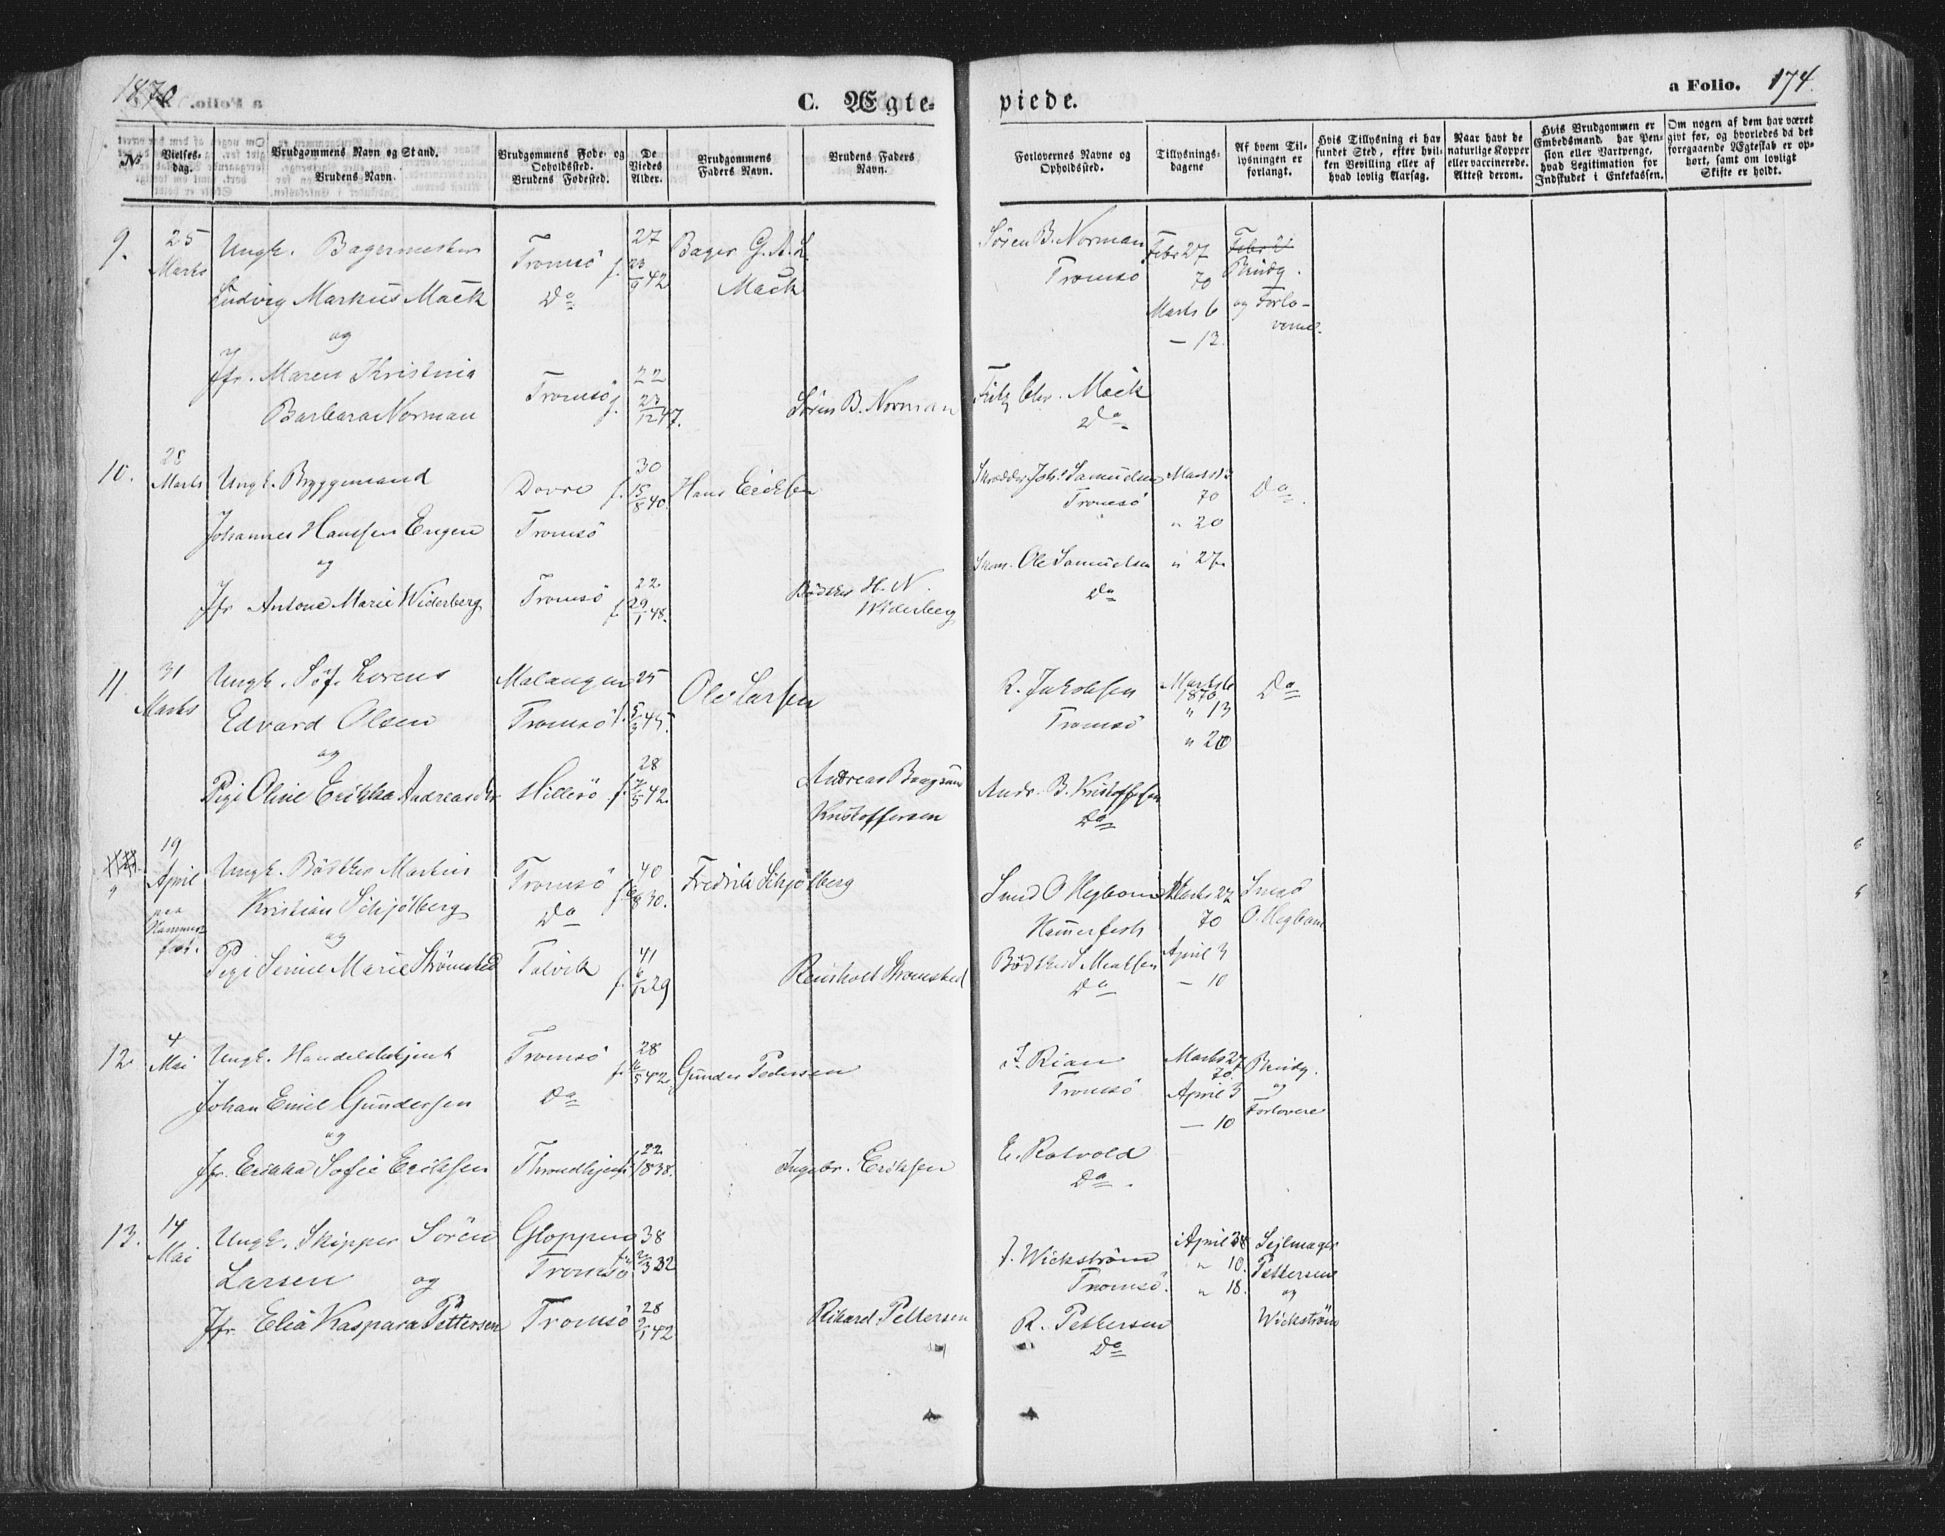 1870
C. Ægte-
viede.
a Folio. 174.
No.
Vielses-
dag.
Brudgommens Navn og Stand.
Brudens Navn.
Brudgommens Føde- og
Opholdssted.
Brudens Fødested.
De
Viedes
Alder.
Brudgommens
Faders Navn.
Brudens Faders
Navn.
Forlovernes Navne og
Opholdssted.
Tillysnings-
dagene
Af hvem Til-
lysningen er
forlangt.
Hvis Tillysning ei har
fundet Sted, efter hvil-
ken Bevilling eller af
hvad lovlig Aarsag.
Naar havt de
naturlige Kopper
eller vaccinerede.
Attest derom.
Hvis Brudgommen er
Embedsmand, har Pen-
sion eller Vartpenge,
hvad Legitimation for
Indskudet i Enkekassen.
Om nogen af dem har været
givt før, og hvorledes da det
foregaaende Ægteskab er op-
hørt, samt om lovligt
Skifte er holdt.
9.
25
Marts
Ungk. Bagermester
Ludvig Markus Mack
og
Jfr. Maren Kristina
Barbara Norman
Tromsö
Do
Tromsö
27
f. 23/9 42
22
f. 23/12 47.
Bager G. A. L.
Mack
Sören B. Norman
Sören B. Norman
Tromsö
Fritz Chr. Mack
Do
Febr 27
70
Marts 6
— 13
Brudg.
og Forlo-
verne.
10.
28
Marts
Ungk. Byggemand
Johannes Hansen Engen
og
Jfr Antone Marie Widerberg
Dovre
Tromsö
Tromsö
30
f. 15/8 40.
22
f. 29/1 48.
Hans Eriksen
Bödker H. N.
Widerberg
Skrædder Johs Samuelsen
Tromsö
Ole Samuelsen
Do
Marts 13
70
" 20
" 27
Do
11
31
Marts
Ungk. Söf. Lorens
Edvard Olsen
og
Pigi Oline Erikka Andreasdr
Malangen
Tromsö
Hillesö
25
f. 5/3 45.
28
f. 7/5 42.
Ole Larsen
Andreas Baagsun
Kristoffersen
R. Jakobsen
Tromsö
Andr. B. Kristoffersen
Do
Marts 6
1870
" 13
" 20
Do
19
April
paa
Hammer-
fest.
Ungk. Bödker Martin
Kristian Schjölberg
og
Pigi Serine Marie Strömsted
Tromsö
Do
Talvik
40
f. 6/8 30.
41
f. 6/12 29
Fredrik Schjölberg
Reinholt Strömsted
Smed O Hegbom
Hammerfest
Bödker S. Mentsen
Do
Marts 27
70
April 3
— 10
Smed
O. Hegbom
12.
4
Mai
Ungk. Handelsbetjent
Johan Emil Gundersen
og
Jfr. Erikka Sofie Eriksen
Tromsö
Do
Throndhjem
28
42
22
1838.
Gunder Pedersen
Ingebr. Eriksen
J. Rian
Tromsö
E. Rotvold
Do.
Marts 27
70
April 3
— 10
Brudg.
og
Forlovere
13.
14
Mai
Ungk. Skipper Sören
Larsen og
Jfr. Elia Kaspara Pettersen
Gloppen
Tromsö
Tromsö
38
2/3 32
28
9/1 42
Rikard Pettersen
J. Wickström
Tromsö.
R. Pettersen
Do
April 3
" 10.
" 18.
Sejlmager
Pettersen
og
Wickström